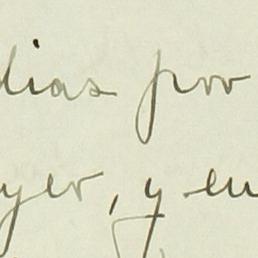 dias por
yer, y en